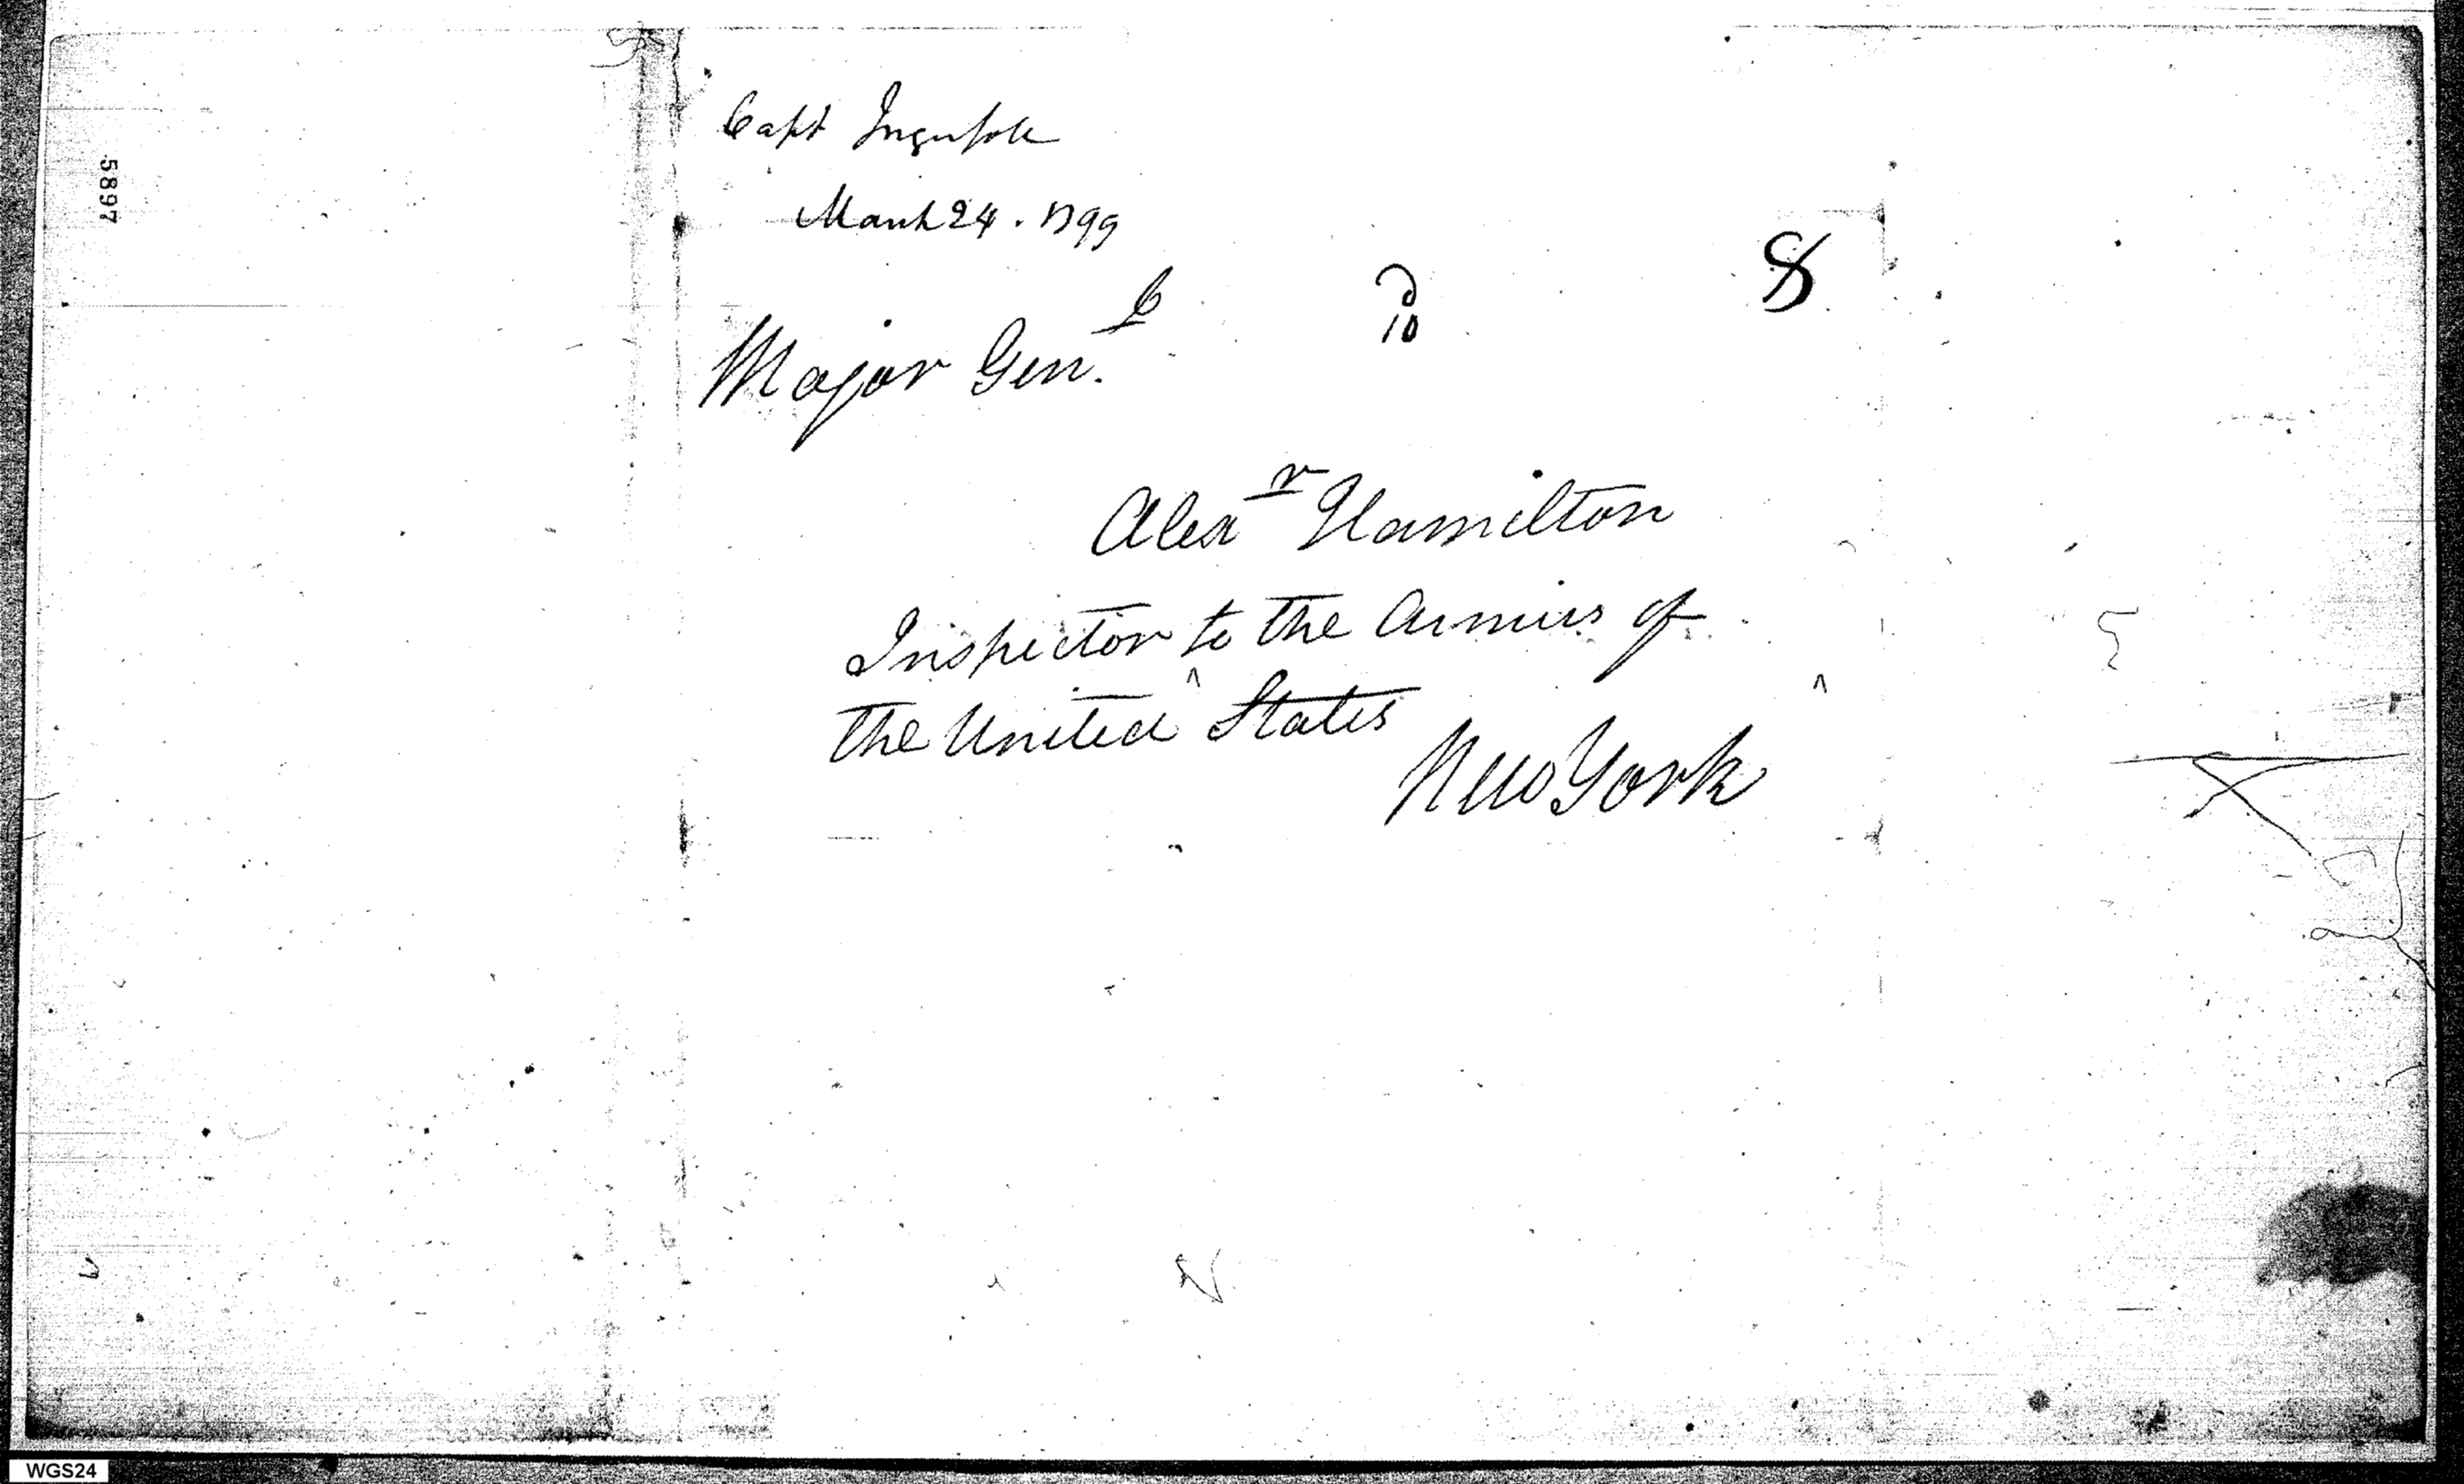 5897
Capt Ingersoll
March 24. 1799
Major Gen.l
10
8
Alexr Hamilton
Inspector to the Armies of
the United States
New York
WGS24